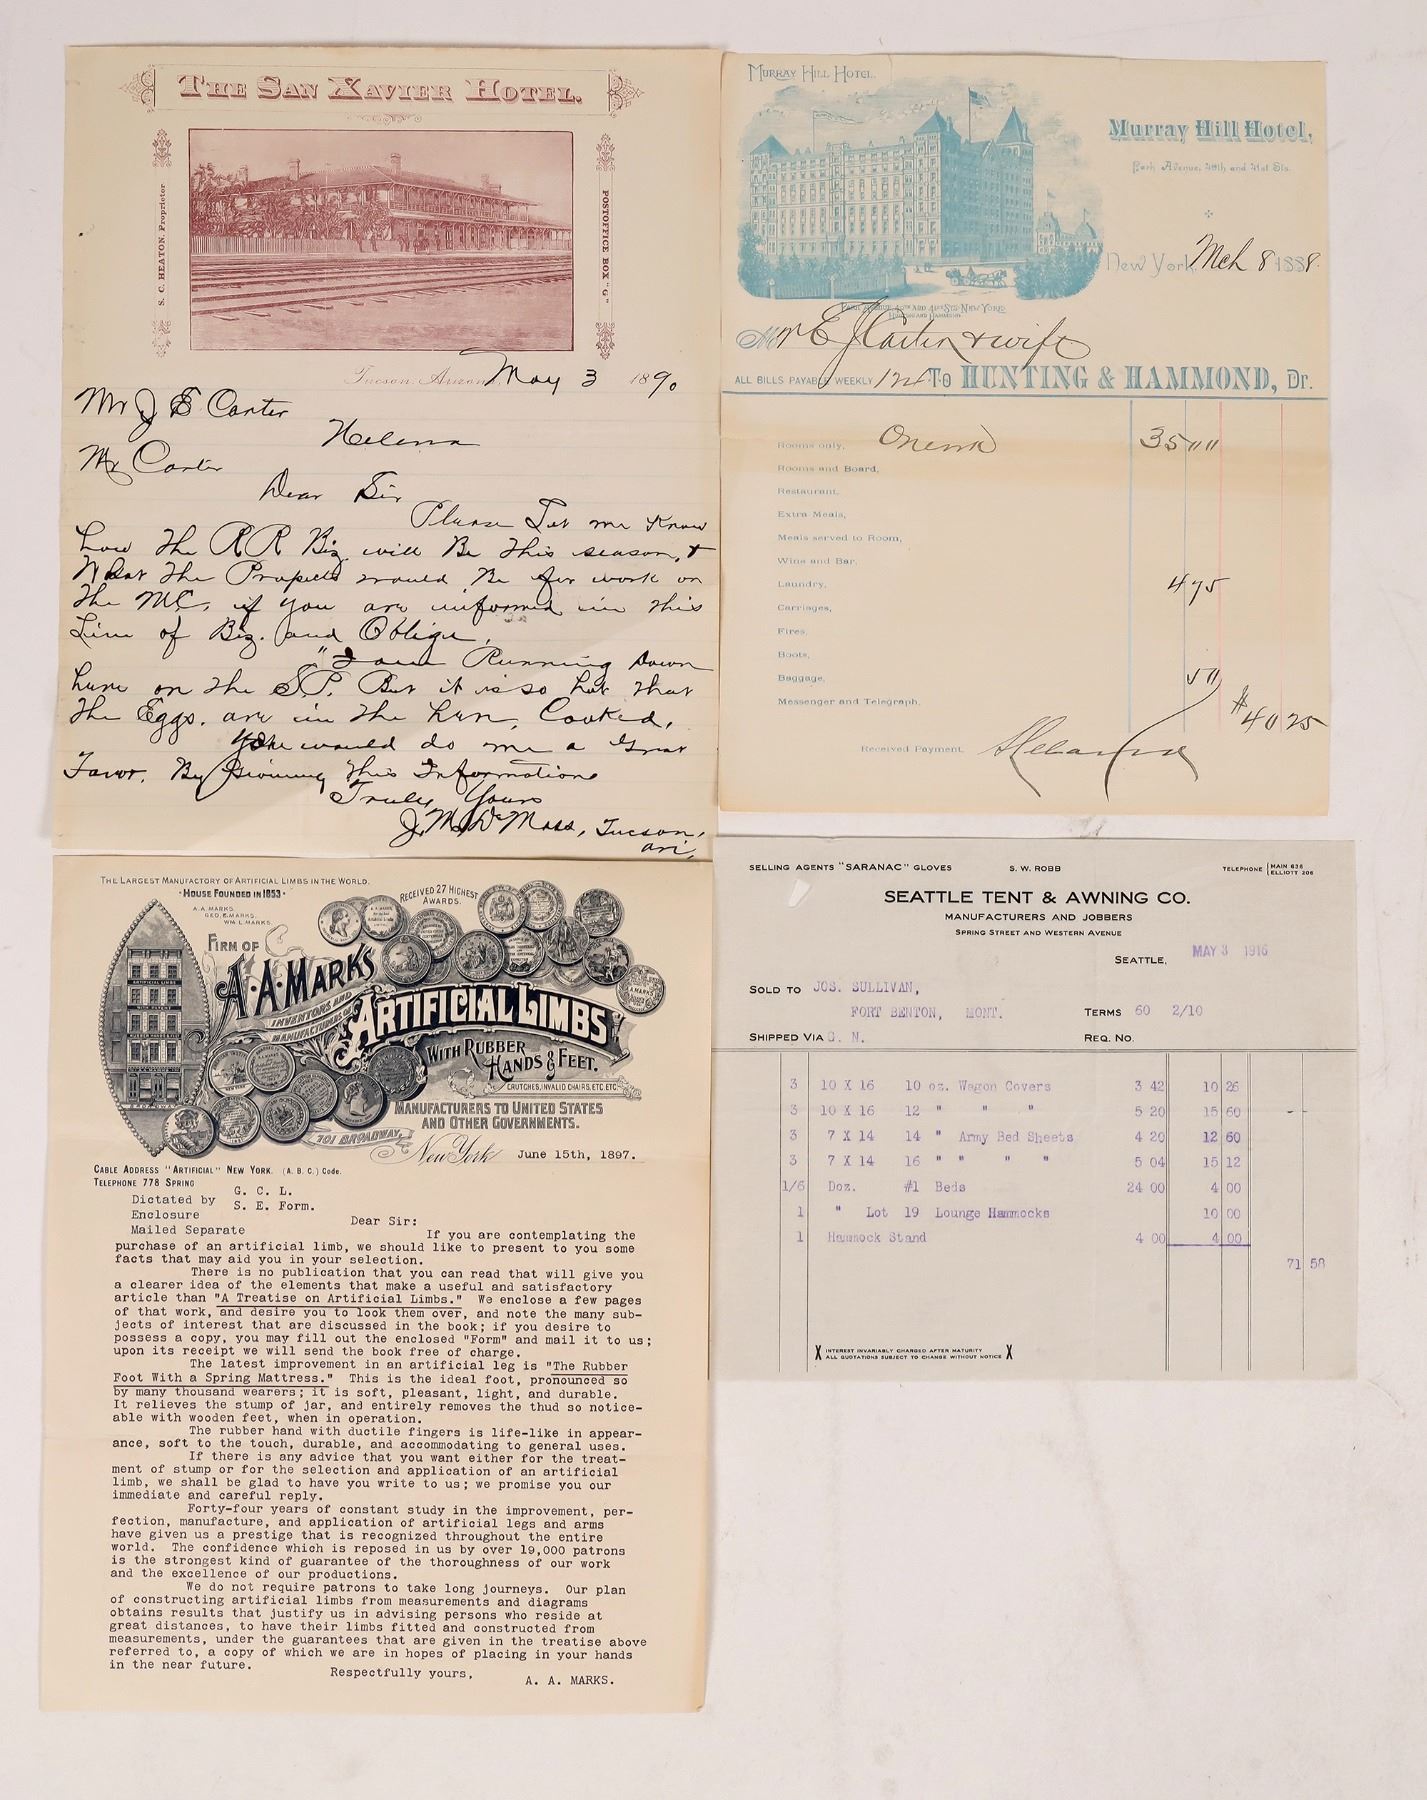 THE SAN XAVIER HOTEL.
S. C. HEATON, Proprietor
POSTOFFICE BOX "G"
Tucson, Arizona, May 3 1890
Mr J E Carter
Helena
Mr Carter
Dear Sir
Please Let me Know
how the R R Biz will Be this season, &
What the Prospects would Be for work on
the MC, if you are informed in this
Line of Biz. and Oblige,
"I am Running Down
here on the S.P. But it is so hot that
the Eggs. are in the hen, Cooked,
You would do me a Great
Favor. By Giving this Information
Truly Yours
Tucson,
ari,
MURRAY HILL HOTEL.
Murray Hill Hotel,
Park Avenue, 40th and 41st Sts.
New York, Mch 8 1888.
PARK AVENUE, 40TH AND 41ST STS. NEW YORK
HUNTING AND HAMMOND
Mr E J Carter & wife
ALL BILLS PAYABLE WEEKLY To HUNTING & HAMMOND, Dr.
Rooms only, One wk 35 00
Rooms and Board,
Restaurant,
Extra Meals,
Meals served to Room,
Wine and Bar,
Laundry, 4 75
Carriages,
Fires,
Boots,
Baggage, 50
Messenger and Telegraph,
$40 25
Received Payment,
THE LARGEST MANUFACTORY OF ARTIFICIAL LIMBS IN THE WORLD.
· HOUSE FOUNDED IN 1853 ·
A. A. MARKS.
GEO. E. MARKS.
WM. L. MARKS.
RECEIVED 27 HIGHEST
AWARDS.
FIRM OF
A·A·MARKS
INVENTORS AND
MANUFACTURERS OF
ARTIFICIAL LIMBS
WITH RUBBER
HANDS & FEET.
CRUTCHES, INVALID CHAIRS, ETC ETC.
MANUFACTURERS TO UNITED STATES
AND OTHER GOVERNMENTS.
701 BROADWAY,
ARTIFICIAL LIMBS
BROADWAY
New York June 15th, 1897.
CABLE ADDRESS "ARTIFICIAL" NEW YORK. (A. B. C.) Code.
TELEPHONE 778 SPRING
Dictated by G. C. L.
Enclosure S. E. Form.
Mailed Separate
Dear Sir:
If you are contemplating the
purchase of an artificial limb, we should like to present to you some
facts that may aid you in your selection.
There is no publication that you can read that will give you
a clearer idea of the elements that make a useful and satisfactory
article than "A Treatise on Artificial Limbs." We enclose a few pages
of that work, and desire you to look them over, and note the many sub-
jects of interest that are discussed in the book; if you desire to
possess a copy, you may fill out the enclosed "Form" and mail it to us;
upon its receipt we will send the book free of charge.
The latest improvement in an artificial leg is "The Rubber
Foot With a Spring Mattress." This is the ideal foot, pronounced so
by many thousand wearers; it is soft, pleasant, light, and durable.
It relieves the stump of jar, and entirely removes the thud so notice-
able with wooden feet, when in operation.
The rubber hand with ductile fingers is life-like in appear-
ance, soft to the touch, durable, and accommodating to general uses.
If there is any advice that you want either for the treat-
ment of stump or for the selection and application of an artificial
limb, we shall be glad to have you write to us; we promise you our
immediate and careful reply.
Forty-four years of constant study in the improvement, per-
fection, manufacture, and application of artificial legs and arms
have given us a prestige that is recognized throughout the entire
world. The confidence which is reposed in us by over 19,000 patrons
is the strongest kind of guarantee of the thoroughness of our work
and the excellence of our productions.
We do not require patrons to take long journeys. Our plan
of constructing artificial limbs from measurements and diagrams
obtains results that justify us in advising persons who reside at
great distances, to have their limbs fitted and constructed from
measurements, under the guarantees that are given in the treatise above
referred to, a copy of which we are in hopes of placing in your hands
in the near future.
Respectfully yours,
A. A. MARKS.
SELLING AGENTS "SARANAC" GLOVES S. W. ROBB TELEPHONE MAIN 636
ELLIOTT 206
SEATTLE TENT & AWNING CO.
MANUFACTURERS AND JOBBERS
SPRING STREET AND WESTERN AVENUE
SEATTLE, MAY 3 1916
SOLD TO JOS. SULLIVAN,
FORT BENTON, MONT. TERMS 60 2/10
SHIPPED VIA G. N. REQ. NO.
3 10 X 16 10 oz. Wagon Covers 3 42 10 26
3 10 X 16 12 " " " 5 20 15 60 --
3 7 X 14 14 " Army Bed Sheets 4 20 12 60
3 7 X 14 16 " " " " 5 04 15 12
1/6 Doz. #1 Beds 24 00 4 00
1 " Lot 19 Lounge Hammocks 10 00
1 Hammock Stand 4 00 4 00
71 58
X INTEREST INVARIABLY CHARGED AFTER MATURITY
ALL QUOTATIONS SUBJECT TO CHANGE WITHOUT NOTICE X